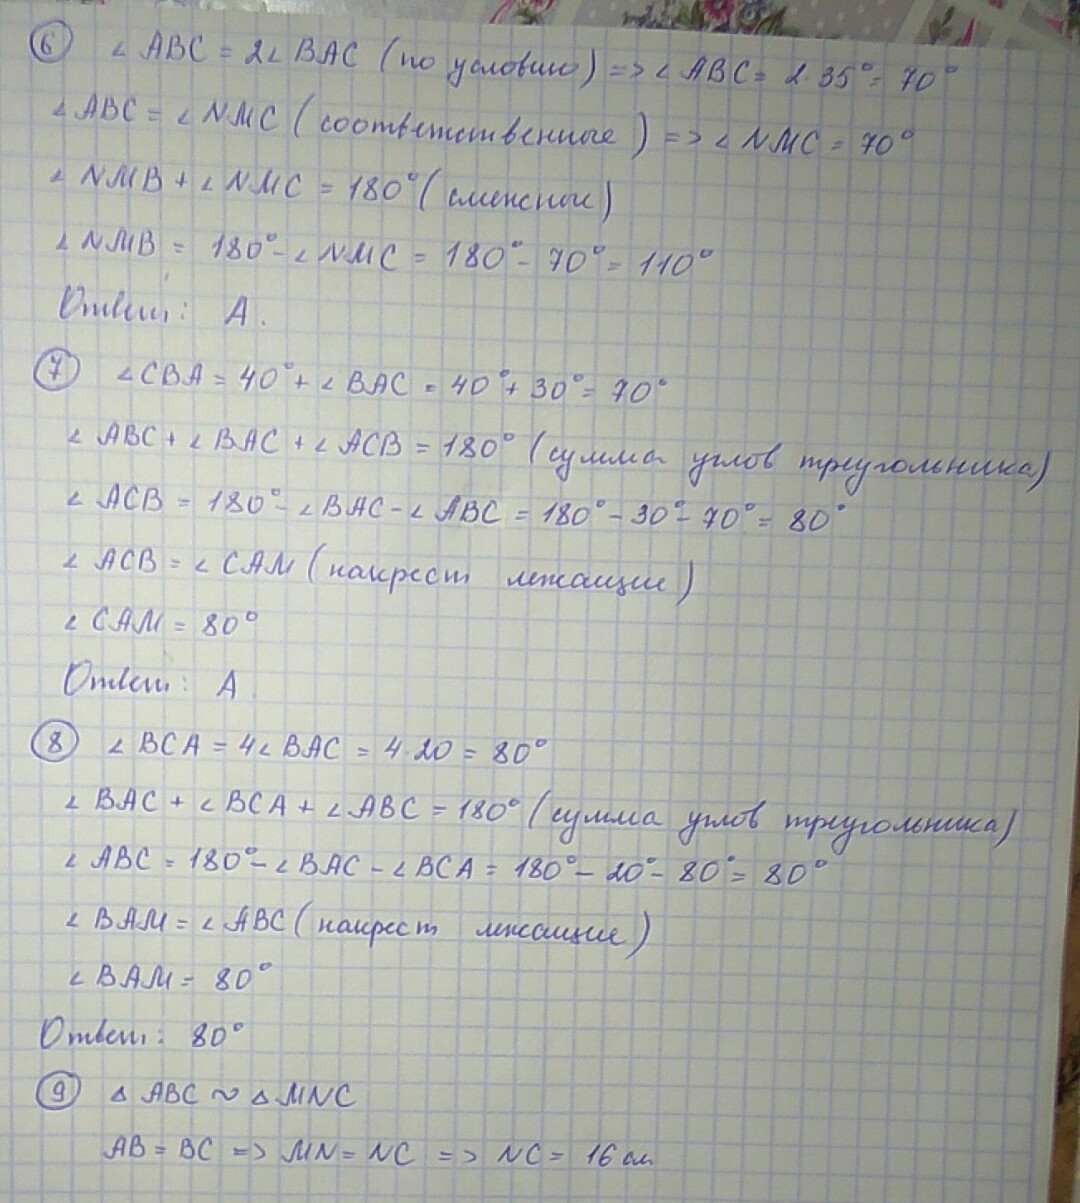 6 ∠ABC = 2∠BAC (по условию) => ∠ABC = 2·35° = 70°
∠ABC = ∠NMC (соответственные) => ∠NMC = 70°
∠NMB + ∠NMC = 180° (смежные)
∠NMB = 180° - ∠NMC = 180° - 70° = 110°
Ответ: А.
7 ∠CBA = 40° + ∠BAC = 40° + 30° = 70°
∠ABC + ∠BAC + ∠ACB = 180° (сумма углов треугольника)
∠ACB = 180° - ∠BAC - ∠ABC = 180° - 30° - 70° = 80°
∠ACB = ∠CAM (накрест лежащие)
∠CAM = 80°
Ответ: А.
8 ∠BCA = 4∠BAC = 4·20 = 80°
∠BAC + ∠BCA + ∠ABC = 180° (сумма углов треугольника)
∠ABC = 180° - ∠BAC - ∠BCA = 180° - 20° - 80° = 80°
∠BAM = ∠ABC (накрест лежащие)
∠BAM = 80°
Ответ: 80°
9 △ABC ~ △MNC
AB = BC => MN = NC => NC = 16 см